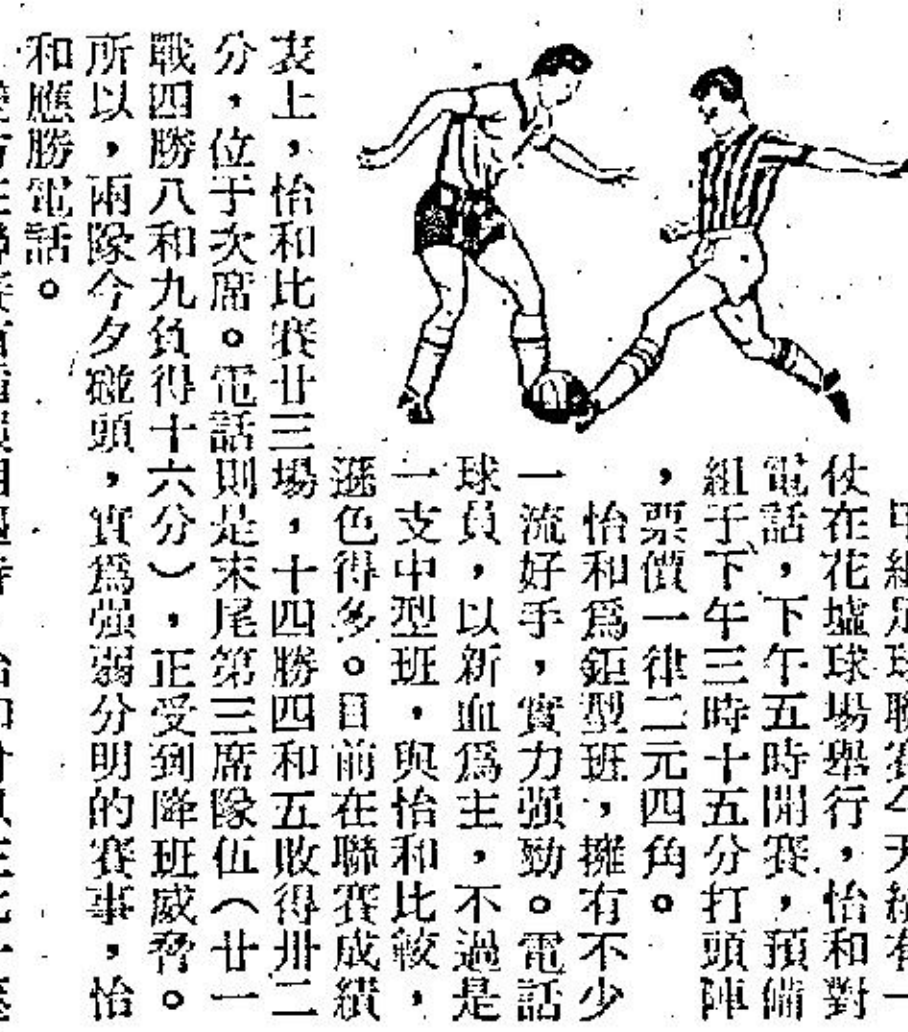 甲組足球聯賽今天續有一
仗在花墟球場舉行，怡和對
電話，下午五時開賽，預備
組于下午三時十五分打頭陣
，票價一律二元四角。
怡和爲鉅型班，擁有不少
一流好手，實力强勁。電話
球員，以新血爲主，不過是
一支中型班，與怡和比較，
遜色得多。目前在聯賽成績
表上，怡和比賽廿三場，十四勝四和五敗得卅二
分，位于次席。電話則是末尾第三席隊伍（廿一
戰四勝八和九負得十六分），正受到降班威脅。
所以，兩隊今夕碰頭，實爲强弱分明的賽事，怡
和應勝電話。